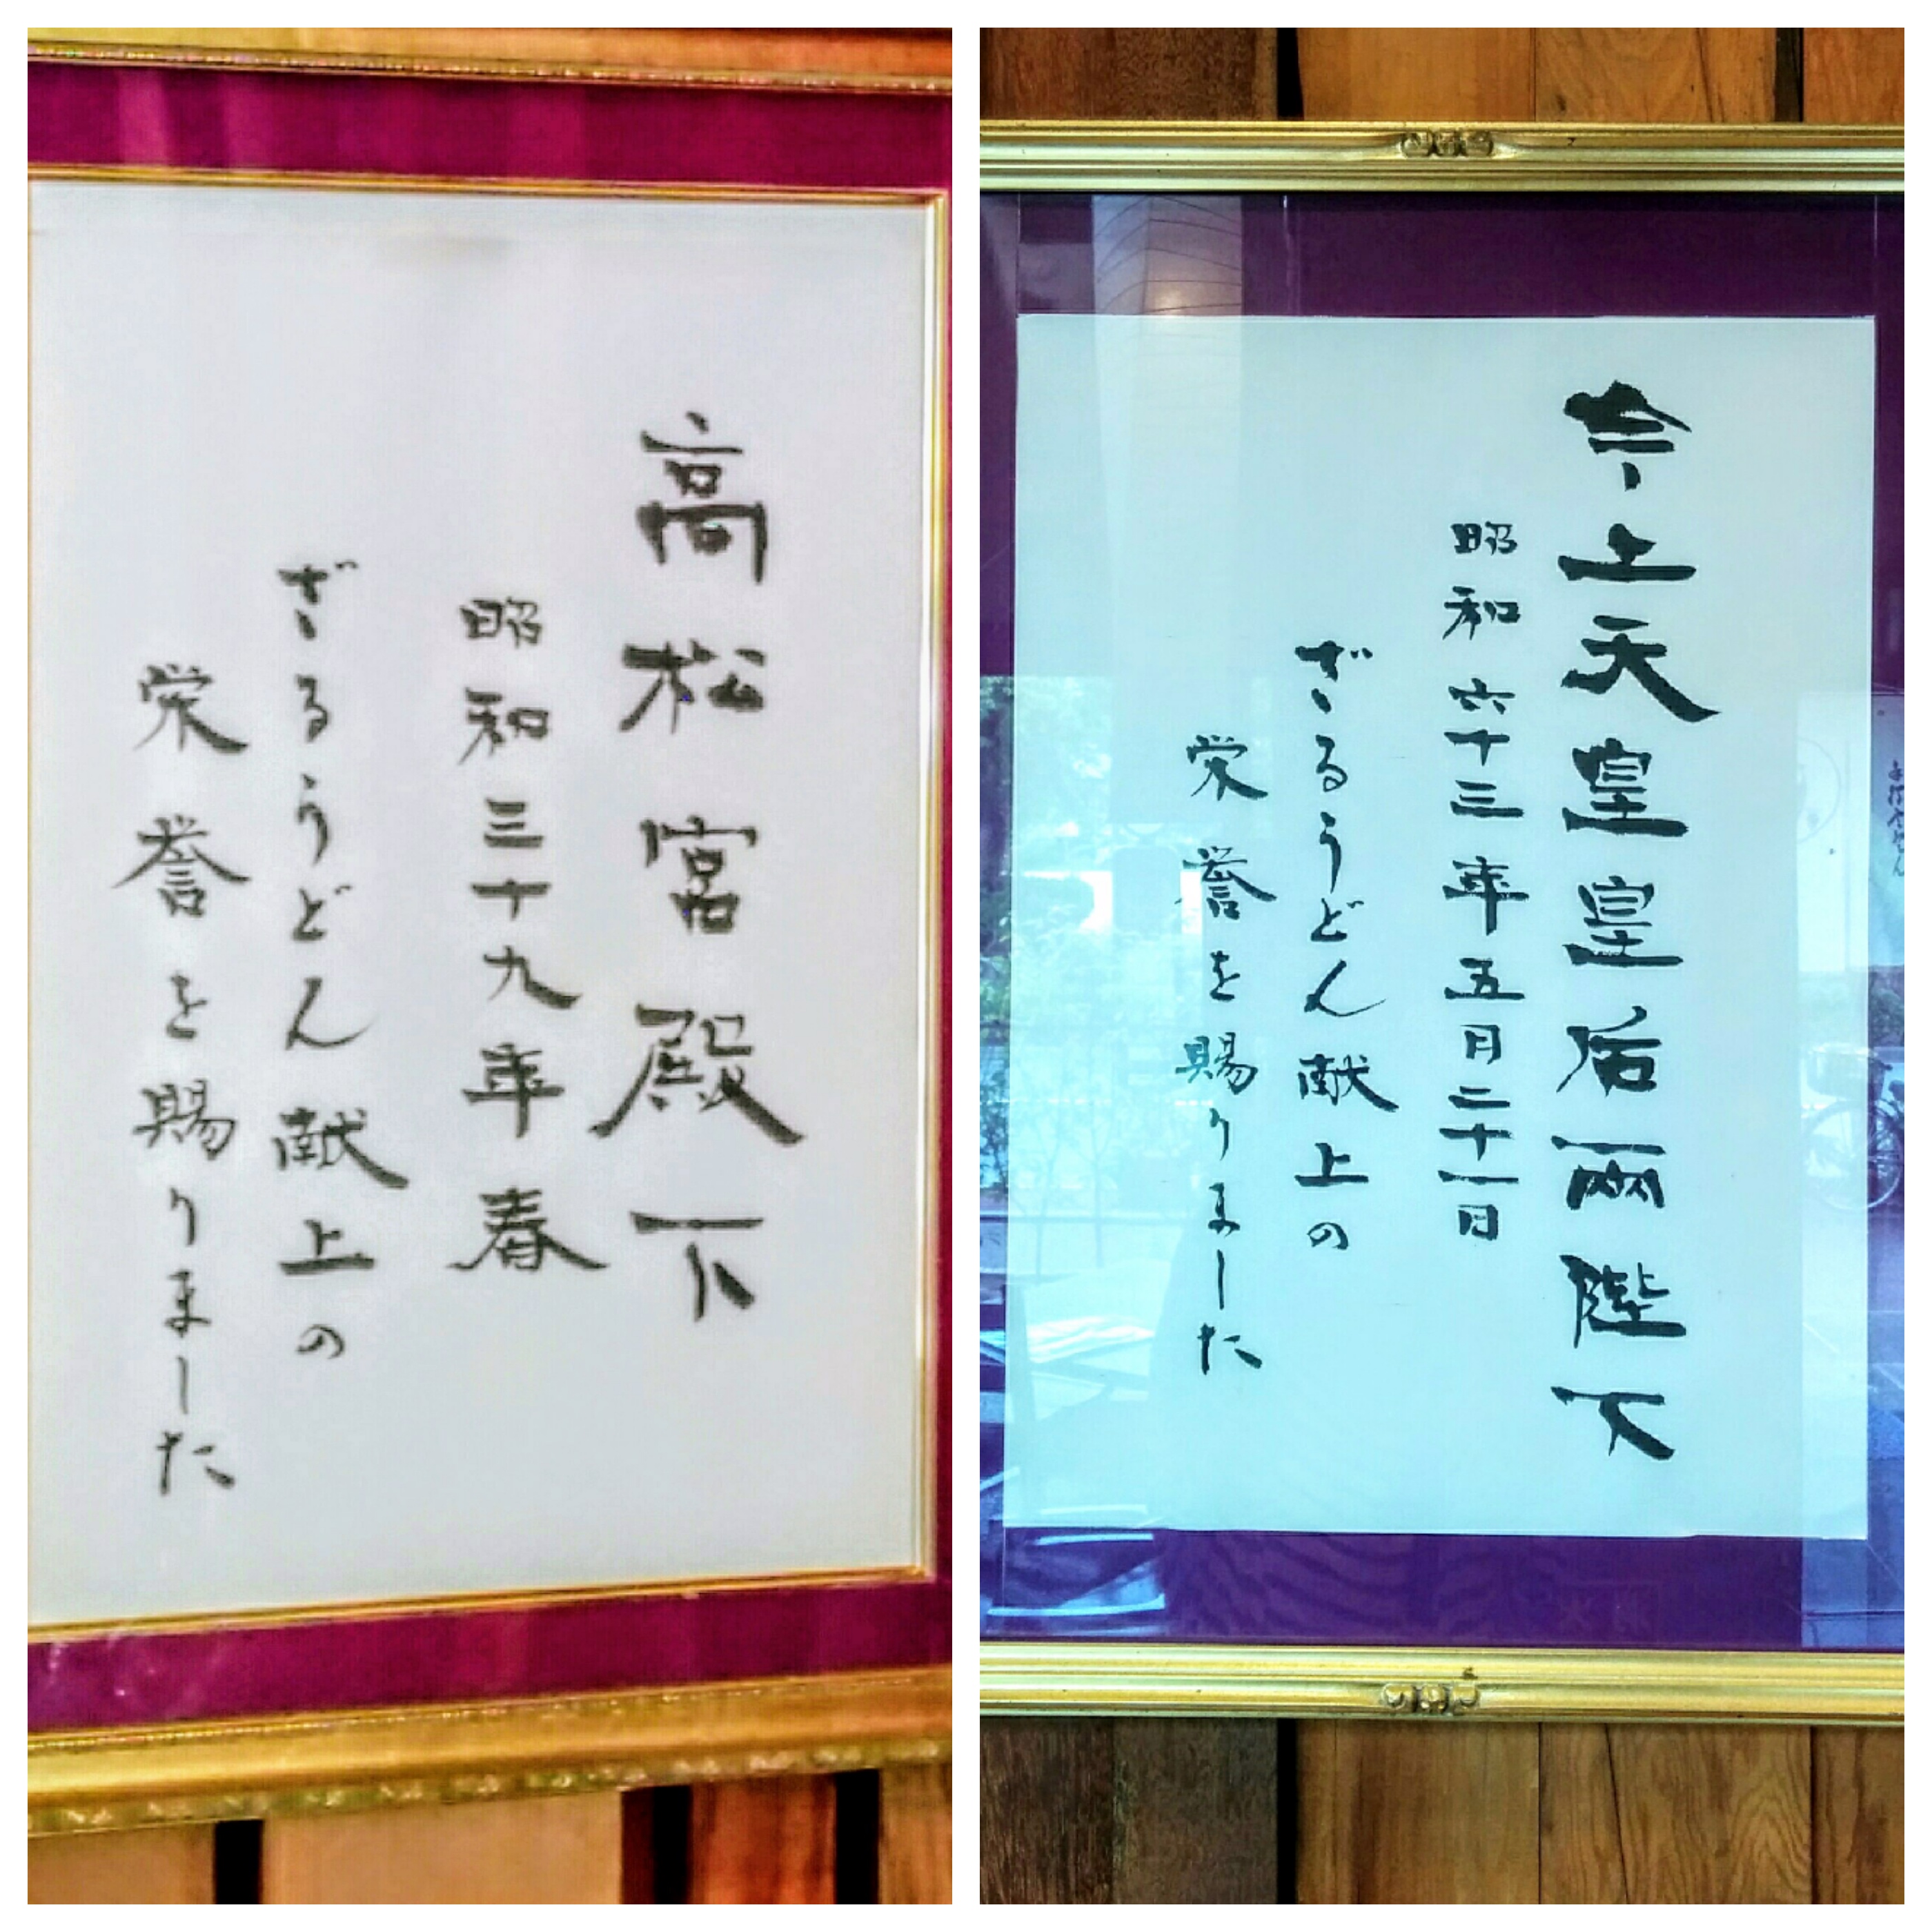 高松宮殿下
昭和三十九年春
ざるうどん献上の
栄誉を賜りました
今上天皇皇后両陛下
昭和六十三年五月二十一日
ざるうどん献上の
栄誉を賜りました